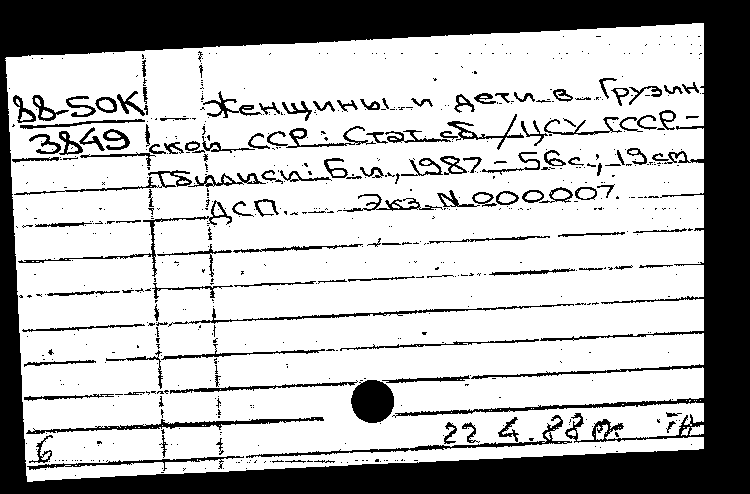 88-50К Женщины и дети в Грузин-
3849 ской ССР: Стат. сб. /ЦСУ ГССР –
Тбилиси: Б.и., 1987. – 56с.; 19 см
ДСП. Экз. N 000007.
22 4. 88
6